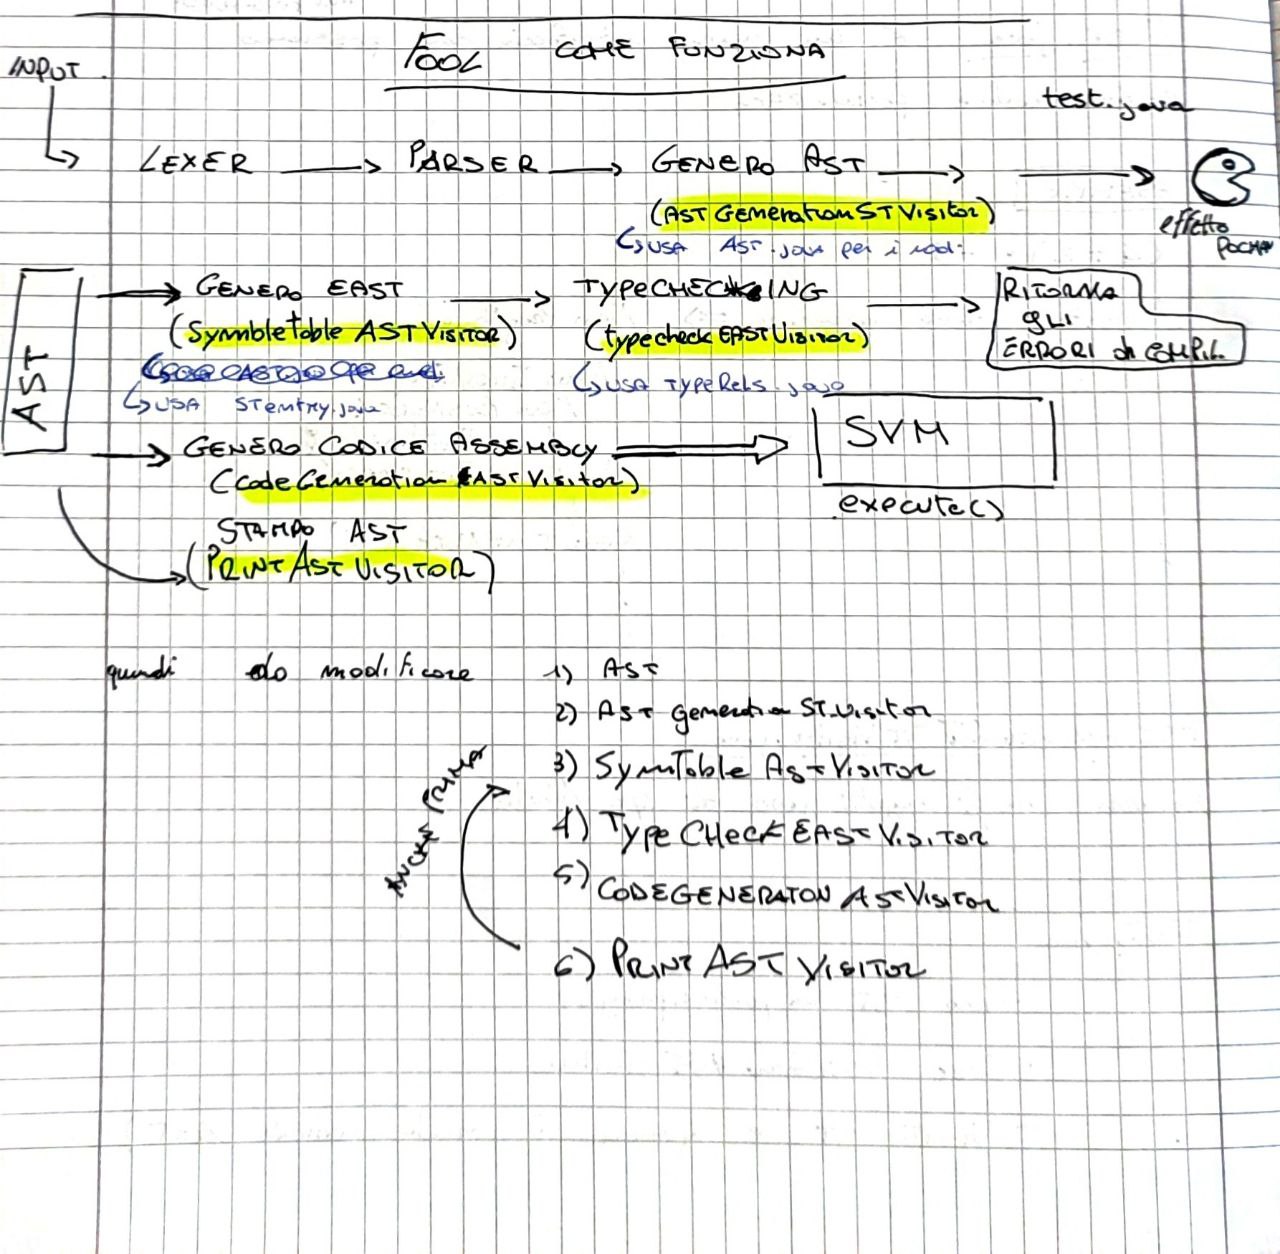 FOOL COME FUNZIONA
INPUT
test.java
LEXER → PARSER → GENERO AST → →
(AST Generation ST Visitor)
effetto
PACMAN
↳ USA AST.java per i nodi
AST
GENERO EAST → TYPECHECKING → RITORNA
GLI
ERRORI di COMPIL.
(Symbletable AST VISITOR) (typecheck EAST Visitor)
↳ USA STentry.java ↳ USA TypeRels.java
→ GENERO CODICE ASSEMBLY ⇒ SVM
(Code Generation AST Visitor)
execute()
STAMPO AST
(PRINT AST VISITOR)
quindi do modificare 1) AST
2) AST generation ST_Visitor
3) SymTable AST VISITOR
4) TYPE CHECK EAST VISITOR
5) CODEGENERATON AST VISITOR
6) PRINT AST VISITOR
ANCHE PRIMA